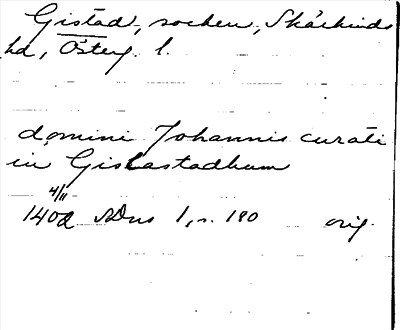 Gistad, socken, Skärkinds
hd, Österg. l.
domini Johannis curati
in Gislastadhum
4/11
1402 SDns 1, s. 180 orig.